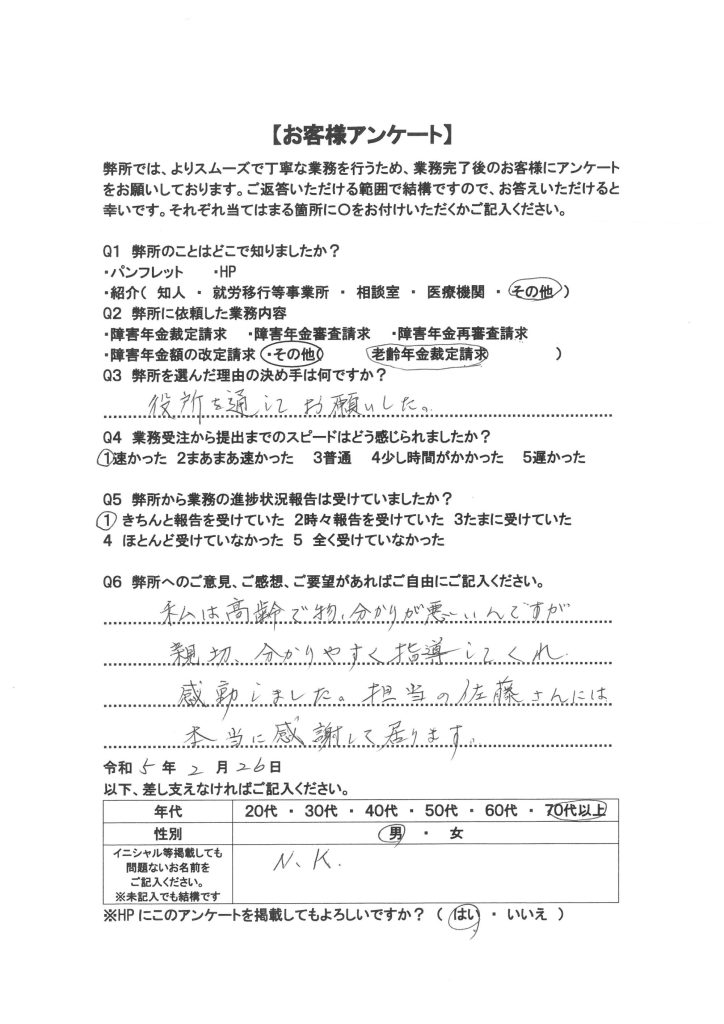 【お客様アンケート】
弊所では、よりスムーズで丁寧な業務を行うため、業務完了後のお客様にアンケート
をお願いしております。ご返答いただける範囲で結構ですので、お答えいただけると
幸いです。それぞれ当てはまる箇所に〇をお付けいただくかご記入ください。
Q1 弊所のことはどこで知りましたか？
・パンフレット ・HP
・紹介（ 知人 ・ 就労移行等事業所 ・ 相談室 ・ 医療機関 ・ その他 ）
Q2 弊所に依頼した業務内容
・障害年金裁定請求 ・障害年金審査請求 ・障害年金再審査請求
・障害年金額の改定請求 ・その他（ 老齢年金裁定請求 ）
Q3 弊所を選んだ理由の決め手は何ですか？
役所を通してお願いした。
Q4 業務受注から提出までのスピードはどう感じられましたか？
1速かった 2まあまあ速かった 3普通 4少し時間がかかった 5遅かった
Q5 弊所から業務の進捗状況報告は受けていましたか？
1 きちんと報告を受けていた 2時々報告を受けていた 3たまに受けていた
4 ほとんど受けていなかった 5 全く受けていなかった
Q6 弊所へのご意見、ご感想、ご要望があればご自由にご記入ください。
私は高齢で物、分かりが悪いんですが
親切、分かりやすく指導してくれ
感動しました。担当の佐藤さんには
本当に感謝して居ります。
令和 5 年 2 月 26 日
以下、差し支えなければご記入ください。
年代 20代 ・ 30代 ・ 40代 ・ 50代 ・ 60代 ・ 70代以上
性別 男 ・ 女
イニシャル等掲載しても
問題ないお名前を
ご記入ください。
※未記入でも結構です
N.K.
※HPにこのアンケートを掲載してもよろしいですか？ （ はい ・ いいえ ）